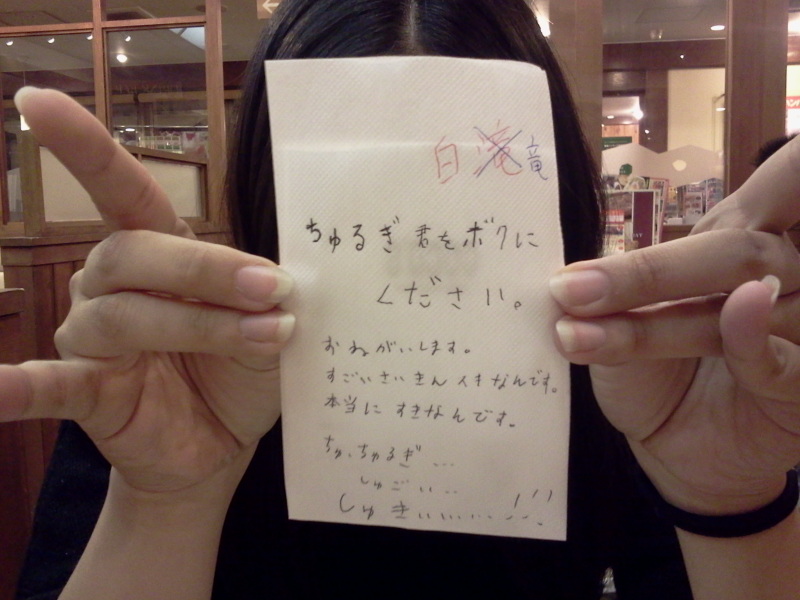 白滝竜
ちゅるぎ君をボクに
ください。
おねがいします。
すごいさいきんスキなんです。
本当にすきなんです。
ちゅ、ちゅるぎ…
しゅごい‥
しゅきぃぃぃ……!!!